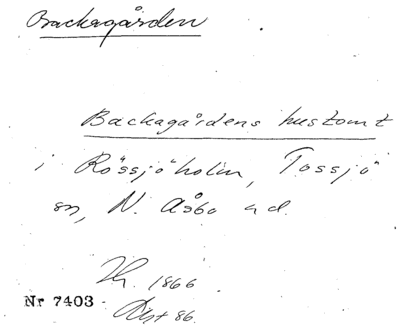 Backagården
Backagårdens hustomt
i Rössjöholm, Tossjö
sn, N. Åsbo hd.
1866
Nr 7403
86.